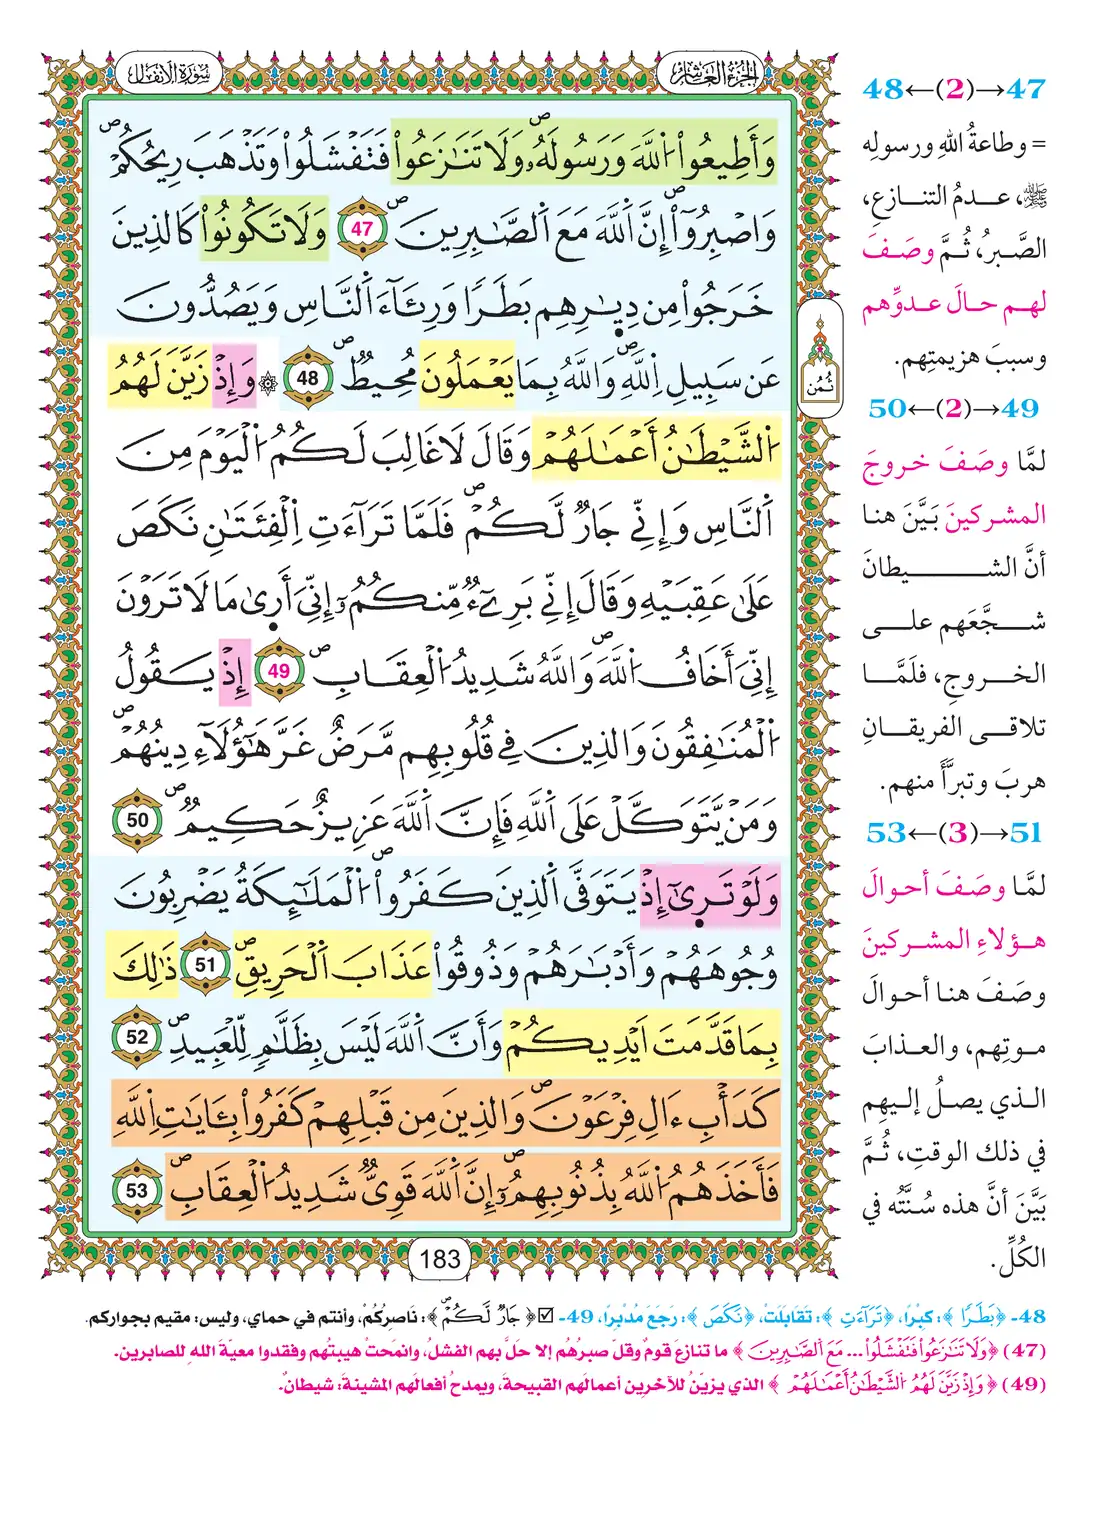 سُورَةُ الأَنفَالِ
الجُزْءُ العَاشِرُ
وَأَطِيعُوا۟ اُ۬للَّهَ وَرَسُولَهُۥ وَلَا تَنَٰزَعُوا۟ فَتَفْشَلُوا۟ وَتَذْهَبَ رِيحُكُمْۖ
وَاصْبِرُوٓا۟ۖ إِنَّ اَ۬للَّهَ مَعَ اَ۬لصَّٰبِرِينَۖ 47 وَلَا تَكُونُوا۟ كَالذِينَ
خَرَجُوا۟ مِن دِيٰ۪رِهِم بَطَرًا وَرِئَآءَ اَ۬لنَّاسِ وَيَصُدُّونَ
عَن سَبِيلِ اِ۬للَّهِۖ وَاللَّهُ بِمَا يَعْمَلُونَ مُحِيطٌۖ 48 ۞ وَإِذْ زَيَّنَ لَهُمُ
اُ۬لشَّيْطَٰنُ أَعْمَٰلَهُمْ وَقَالَ لَا غَالِبَ لَكُمُ اُ۬لْيَوْمَ مِنَ
اَ۬لنَّاسِ وَإِنِّي جَارٌ لَّكُمْۖ فَلَمَّا تَرَآءَتِ اِ۬لْفِئَتَٰنِ نَكَصَ
عَلَىٰ عَقِبَيْهِ وَقَالَ إِنِّي بَرِيٓءٌ مِّنكُمُۥٓ إِنِّيَ أَر۪ىٰ مَا لَا تَرَوْنَ
إِنِّيَ أَخَافُ اُ۬للَّهَۖ وَاللَّهُ شَدِيدُ اُ۬لْعِقَابِۖ 49 إِذْ يَقُولُ
اُ۬لْمُنَٰفِقُونَ وَالذِينَ فِي قُلُوبِهِم مَّرَضٌ غَرَّ هَٰٓؤُلَآءِ دِينُهُمْۖ
وَمَنْ يَّتَوَكَّلْ عَلَى اَ۬للَّهِ فَإِنَّ اَ۬للَّهَ عَزِيزٌ حَكِيمٌۖ 50
وَلَوْ تَر۪ىٰٓ إِذْ يَتَوَفَّى اَ۬لذِينَ كَفَرُوا۟ۖ اُ۬لْمَلَٰٓئِكَةُ يَضْرِبُونَ
وُجُوهَهُمْ وَأَدْبَٰرَهُمْ وَذُوقُوا۟ عَذَابَ اَ۬لْحَرِيقِۖ 51 ذَٰلِكَ
بِمَا قَدَّمَتَ اَيْدِيكُمْ وَأَنَّ اَ۬للَّهَ لَيْسَ بِظَلَّٰمٍ لِّلْعَبِيدِۖ 52
كَدَأْبِ ءَالِ فِرْعَوْنَۖ وَالذِينَ مِن قَبْلِهِمْ كَفَرُوا۟ بِـَٔايَٰتِ اِ۬للَّهِ
فَأَخَذَهُمُ اُ۬للَّهُ بِذُنُوبِهِمُۥٓۖ إِنَّ اَ۬للَّهَ قَوِيٌّ شَدِيدُ اُ۬لْعِقَابِۖ 53
183
ثُمُن
47→(2)←48
= وطاعةُ اللهِ ورسولِه
ﷺ، عدمُ التنازعِ،
الصَّبرُ، ثُمَّ وصَفَ
لهم حالَ عدوِّهم
وسببَ هزيمتِهم.
49→(2)←50
لمَّا وصَفَ خروجَ
المشركينَ بَيَّنَ هنا
أنَّ الشيطانَ
شجَّعَهم على
الخروجِ، فلَمَّا
تلاقى الفريقانِ
هربَ وتبرَّأَ منهم.
51→(3)←53
لمَّا وصَفَ أحوالَ
هؤلاءِ المشركينَ
وصَفَ هنا أحوالَ
موتِهم، والعذابَ
الذي يصلُ إليهِم
في ذلك الوقتِ، ثُمَّ
بَيَّنَ أنَّ هذه سُنَّتُه في
الكُلِّ.
48- ﴿بَطَرًا﴾: كِبْرًا، ﴿تَرَآءَتِ﴾: تَقَابَلَتْ، ﴿نَكَصَ﴾: رَجَعَ مُدْبِرًا، 49- ☑ ﴿جَارٌ لَّكُمْۖ﴾: نَاصِرُكُمْ، وأنتم في حماي، وليس: مقيم بجواركم.
(47) ﴿وَلَا تَنَٰزَعُوا۟ فَتَفْشَلُوا۟ ... مَعَ اَ۬لصَّٰبِرِينَ﴾ ما تنازعَ قومٌ وقلَّ صبرُهُم إلا حلَّ بهم الفشل، وانمحتْ هيبتُهم وفقدوا معيّةَ اللهِ للصابرين.
(49) ﴿وَإِذْ زَيَّنَ لَهُمُ اُ۬لشَّيْطَٰنُ أَعْمَٰلَهُمْ﴾ الذي يزيّنُ للآخرين أعمالَهم القبيحةَ، ويمدحُ أفعالَهم المشينةَ: شيطانٌ.